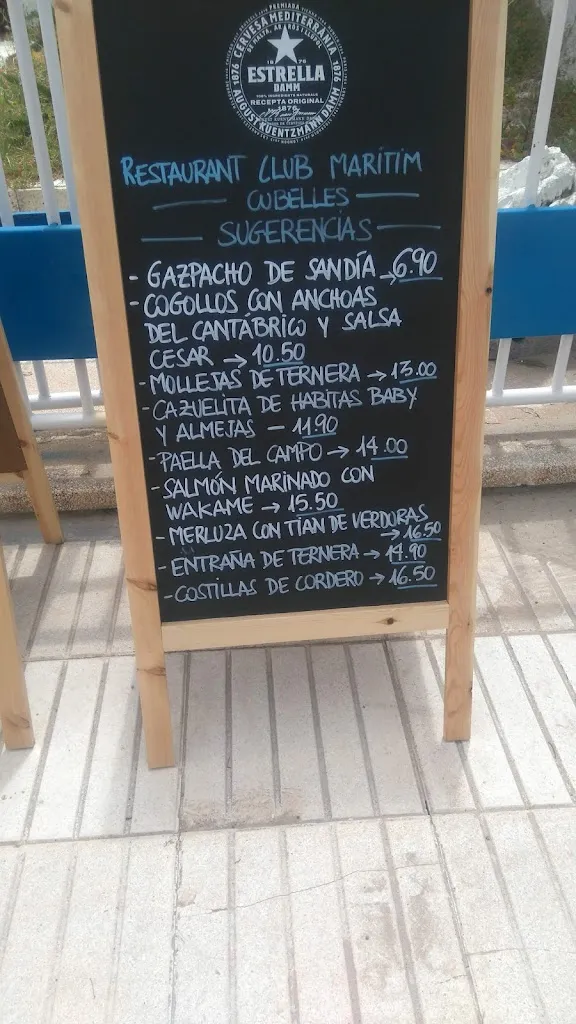 PREMIADA
CERVESA MEDITERRÀNIA
DE MALTA, ARRÒS I LLÚPOL
1876
1876
1876
ESTRELLA
DAMM
100% INGREDIENTS NATURALS
RECEPTA ORIGINAL
1876
AUGUST KUENTZMANN DAMM
RESTAURANT CLUB MARÍTIM
CUBELLES
SUGERENCÍAS
- GAZPACHO DE SANDÍA → 6.90
- COGOLLOS CON ANCHOAS
DEL CANTÁBRICO Y SALSA
CESAR → 10.50
- MOLLEJAS DE TERNERA → 13.00
- CAZUELITA DE HABITAS BABY
Y ALMEJAS - 11.90
- PAELLA DEL CAMPO → 14.00
- SALMÓN MARINADO CON
WAKAME → 15.50
- MERLUZA CON TÍAN DE VERDURAS
→ 16.50
- ENTRAÑA DE TERNERA → 14.90
- COSTILLAS DE CORDERO → 16.50